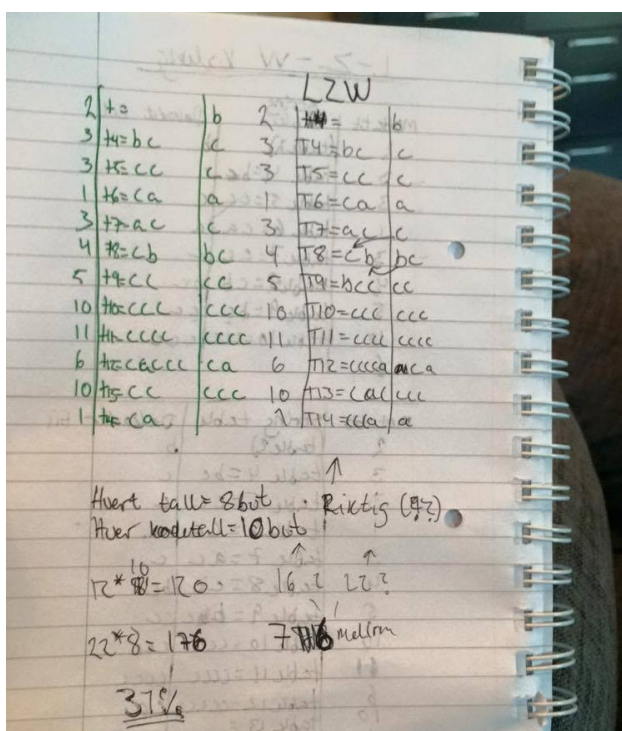 LZW
2 t= b 2 = b
3 t4=bc c 3 T4=bc c
3 t5=cc c 3 T5=cc c
1 t6=ca a 1 T6=ca a
3 t7=ac c 3 T7=ac c
4 t8=cb bc 4 T8=cb bc
5 t9=cc cc 5 T9=bcc cc
10 t10=ccc ccc 10 T10=ccc ccc
11 t11=cccc cccc 11 T11=cccc cccc
6 t12=caccc ca 6 T12=cccca ca
10 t13=cc ccc 10 T13=cac ccc
1 ca 1 T14=ccca a
Hvert tall= 8but · Riktig
Hver kodetall=10but
12* 10 =120 16? 22?
22*8=176 mellom
37%